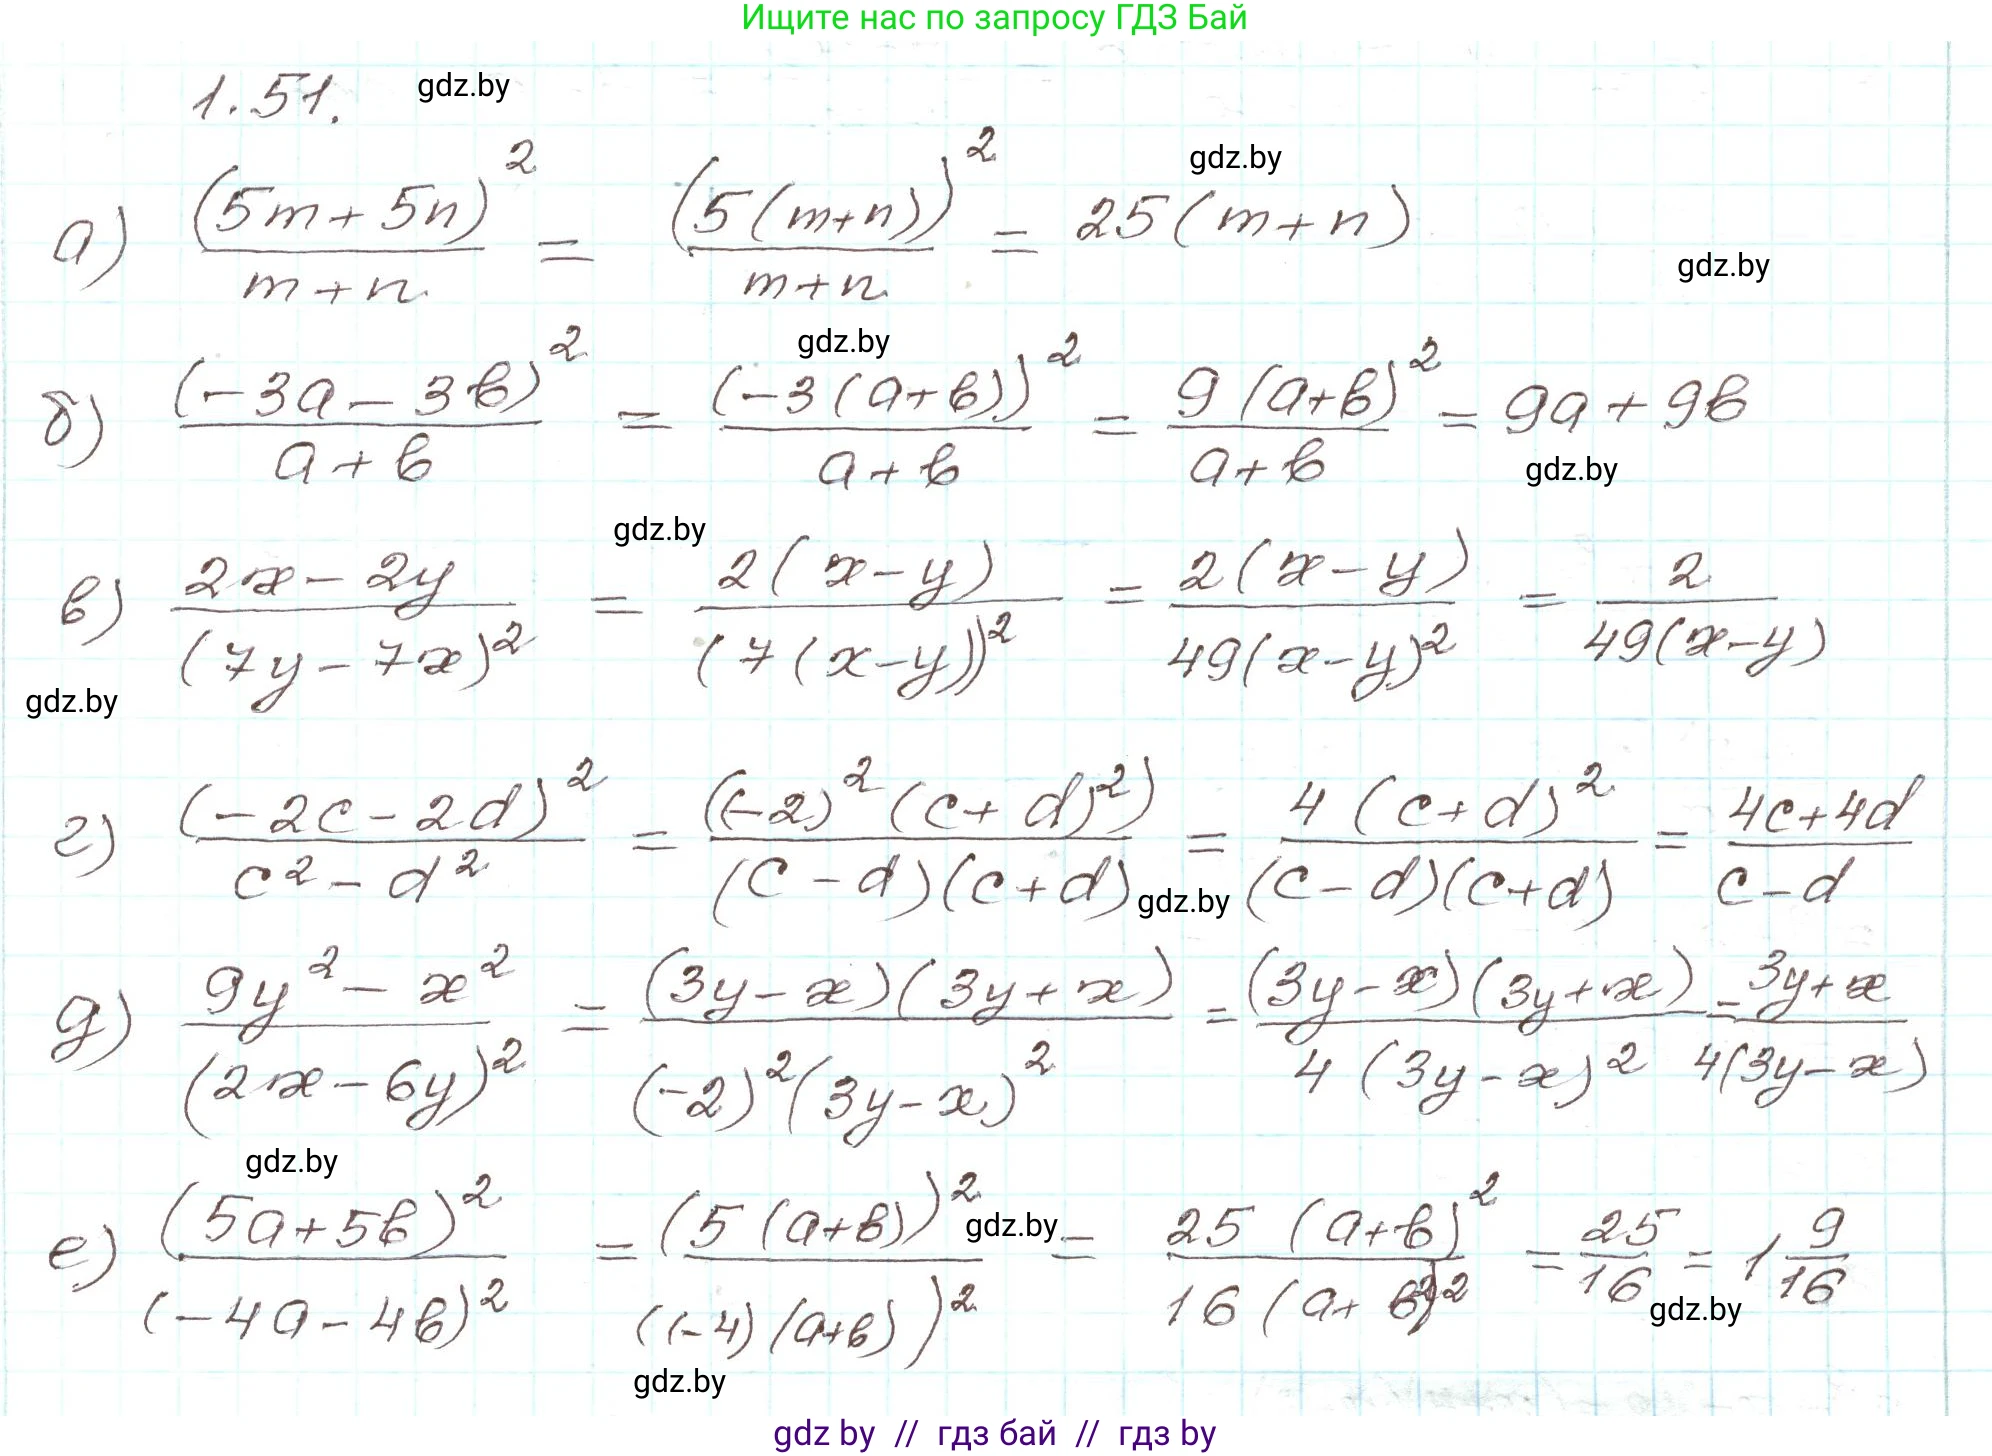 Ищите нас по запросу ГДЗ Бай
1.51. gdz.by
gdz.by
а) (5m+5n)²/(m+n) = (5(m+n))²/(m+n) = 25(m+n)
gdz.by
gdz.by
б) (-3a-3b)²/(a+b) = (-3(a+b))²/(a+b) = 9(a+b)²/(a+b) = 9a+9b
gdz.by
gdz.by
в) (2x-2y)/(7y-7x)² = 2(x-y)/(7(x-y))² = 2(x-y)/49(x-y)² = 2/49(x-y)
gdz.by
г) (-2c-2d)²/(c²-d²) = ((-2)²(c+d)²)/(c-d)(c+d) = 4(c+d)²/(c-d)(c+d) = (4c+4d)/(c-d)
gdz.by
д) (9y²-x²)/(2x-6y)² = (3y-x)(3y+x)/(-2)²(3y-x)² = (3y-x)(3y+x)/4(3y-x)² = (3y+x)/4(3y-x)
gdz.by
е) (5a+5b)²/(-4a-4b)² = (5(a+b))²/((-4)(a+b))² = 25(a+b)²/16(a+b)² = 25/16 = 1 9/16
gdz.by
gdz.by
gdz.by
gdz by // гдз бай // гдз by